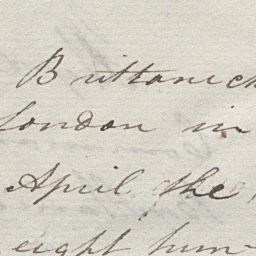 Brittanick
London in
April the
eight hun